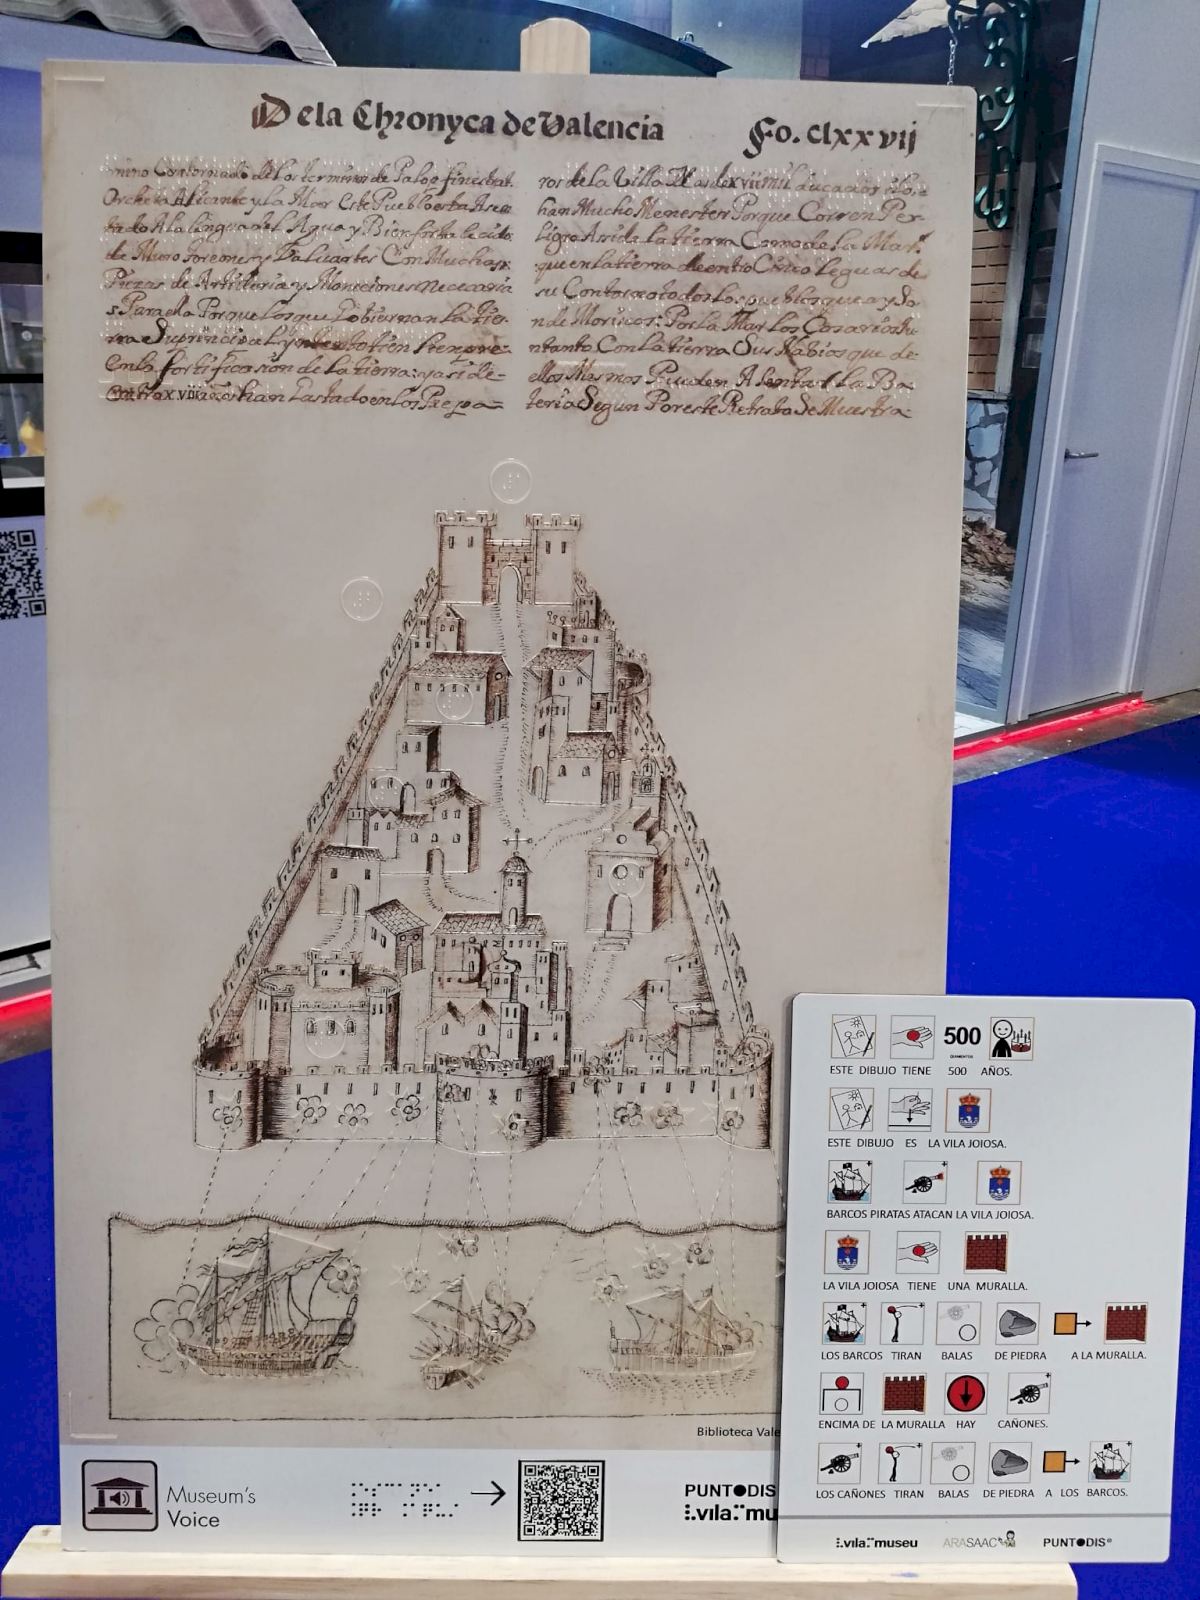 Dela Chronyca de Valencia
Fo. clxxvij
mino Contornado de los terminos de Palop finestrat.
Orcheta Alicante y la Mar Este Pueblo esta Asen
tado A la lingua del Agua y Bien fortalecido
de Muro Torreones y Baluartes Con Muchas
Piezas de Artilleria y Moniciones Necesaria
s Para ella Porque los que Gobiernan la tier
rra
en la fortificasion de la tierra: y asi de
xviij han Gastado en los Repa
ros de la Villa Mas de xviij mil ducados
han Mucho Menester Porque Corren Pe
ligro Assi de la tierra Como de la Mar
que en la tierra dentro Cinco leguas de
su Contorno todos los pueblos que ay So
n de Moriscos: Por la Mar los Cosarios Iu
ntanto Con la tierra Sus Nabios que de
ellos Mesmos Pueden Asentar la Ba
teria Segun Por este Retrato Se Muestra
Biblioteca Vale
Museum's
Voice
PUNTODIS
vila museu
500
ESTE DIBUJO TIENE 500 AÑOS.
ESTE DIBUJO ES LA VILA JOIOSA.
BARCOS PIRATAS ATACAN LA VILA JOIOSA.
LA VILA JOIOSA TIENE UNA MURALLA.
LOS BARCOS TIRAN BALAS DE PIEDRA A LA MURALLA.
ENCIMA DE LA MURALLA HAY CAÑONES.
LOS CAÑONES TIRAN BALAS DE PIEDRA A LOS BARCOS.
vila museu ARASAAC PUNTODIS